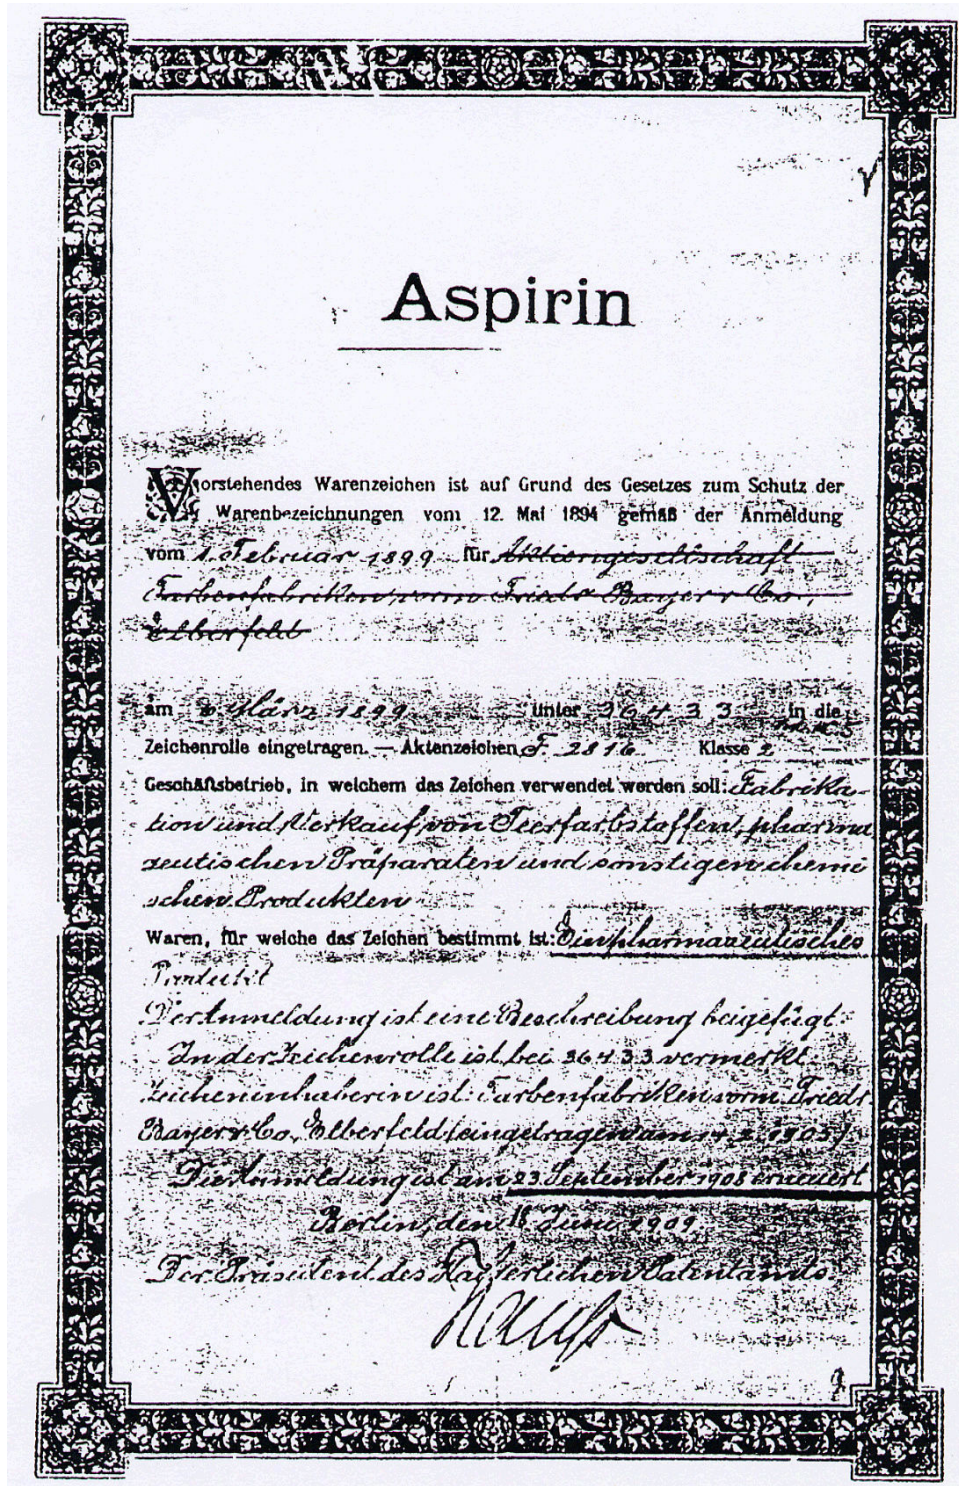 Aspirin
Vorstehendes Warenzeichen ist auf Grund des Gesetzes zum Schutz der
Warenbezeichnungen vom 12. Mai 1894 gemäß der Anmeldung
vom 1. Februar 1899 für Aktiengesellschaft
Farbenfabriken vorm Friedr Bayer & Co.,
Elberfeld
am März 1899 unter 36433 in die
Zeichenrolle eingetragen. — Aktenzeichen F. 2816 Klasse 2
Geschäftsbetrieb, in welchem das Zeichen verwendet werden soll: Fabrika-
tion und Verkauf von Teerfarbstoffen, pharma
zeutischen Präparaten und sonstigen chemi
schen Produkten
Waren, für welche das Zeichen bestimmt ist: Ein pharmazeutisches
Produkt
Der Anmeldung ist eine Beschreibung beigefügt.
In der Zeichenrolle ist bei 36433 vermerkt
Zeicheninhaberin ist: Farbenfabriken vorm. Friedr
Bayer & Co., Elberfeld (eingetragen am
Die Anmeldung ist am 23. September 1908 erneuert
Berlin, den Juni 1909
Der Präsident des Kaiserlichen Patentamts